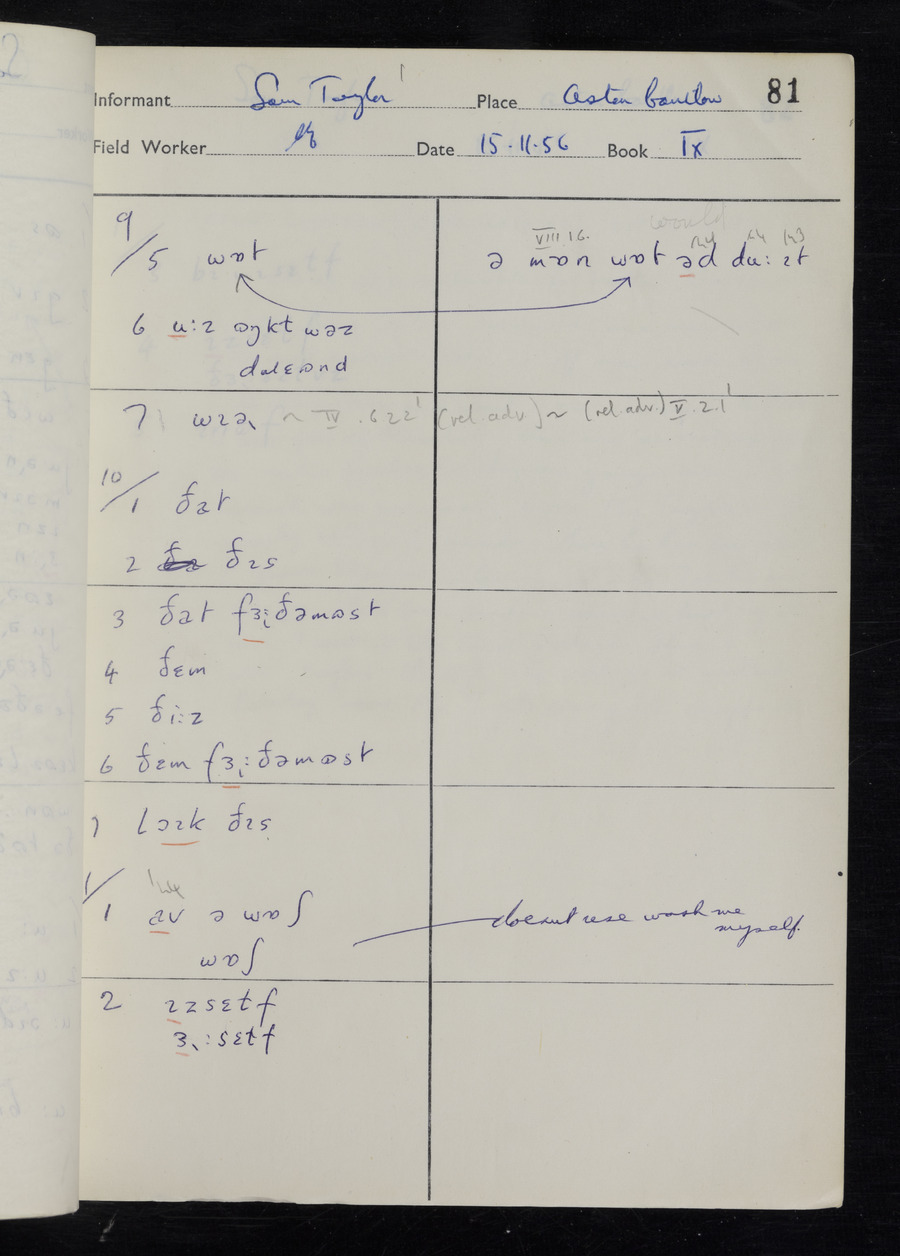 Informant Sam Taylor Place Aston Cantlow 81
Field Worker Date 15.11.56 Book IX
9/5 wɒt
would
VIII.1.6.
ə mɒn wɒt əd du: ɪt
6 u:z ɒŋkt wəz
7 wɪə ~ IV.6.22 (rel. adv.) ~ (rel. adv.) V.2.1
10/1 ðat
2 ðɪs
3 ðat fɜ:ðəmɒst
4 ðɛm
5 ði:z
6 ðɛm fɜ:ðəmɒst
7 lɔɪk ðɪs
1 av ə wɒʃ
doesnt use wash me
myself.
wɒʃ
2 ɪzsɛtf
ɜ:sɛtf